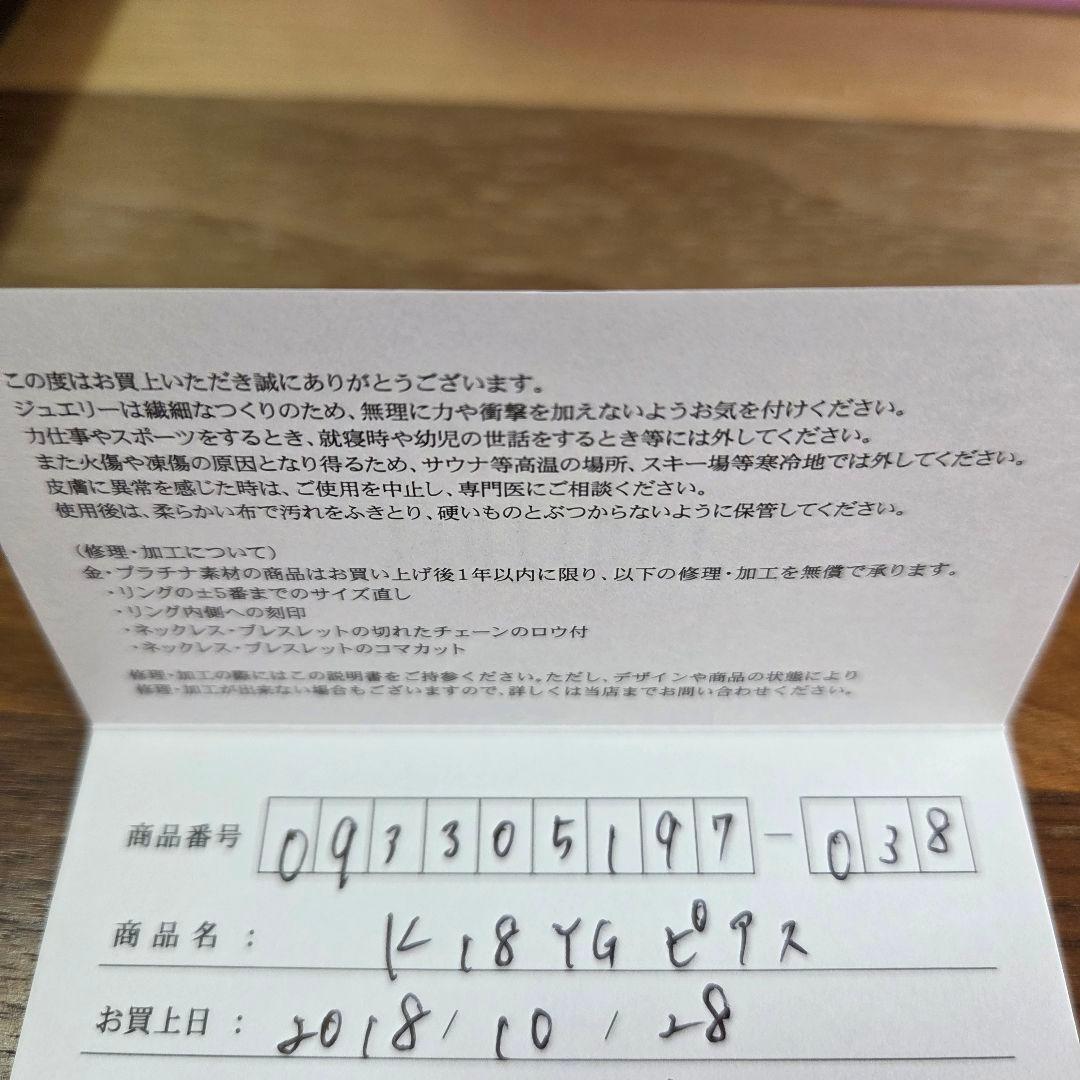 この度はお買上いただき誠にありがとうございます。
ジュエリーは繊細なつくりのため、無理に力や衝撃を加えないようお気を付けください。
力仕事やスポーツをするとき、就寝時や幼児の世話をするとき等には外してください。
また火傷や凍傷の原因となり得るため、サウナ等高温の場所、スキー場等寒冷地では外してください。
皮膚に異常を感じた時は、ご使用を中止し、専門医にご相談ください。
使用後は、柔らかい布で汚れをふきとり、硬いものとぶつからないように保管してください。
（修理・加工について）
金・プラチナ素材の商品はお買い上げ後1年以内に限り、以下の修理・加工を無償で承ります。
・リングの±5番までのサイズ直し
・リング内側への刻印
・ネックレス・ブレスレットの切れたチェーンのロウ付
・ネックレス・ブレスレットのコマカット
修理・加工の際にはこの説明書をご持参ください。ただし、デザインや商品の状態により
修理・加工が出来ない場合もございますので、詳しくは当店までお問い合わせください。
商品番号 093305197-038
商品名： K18YGピアス
お買上日： 2018/10/28